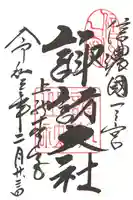 信濃國一之宮
諏訪大社
上社本宮
令和三年十二月廿三日